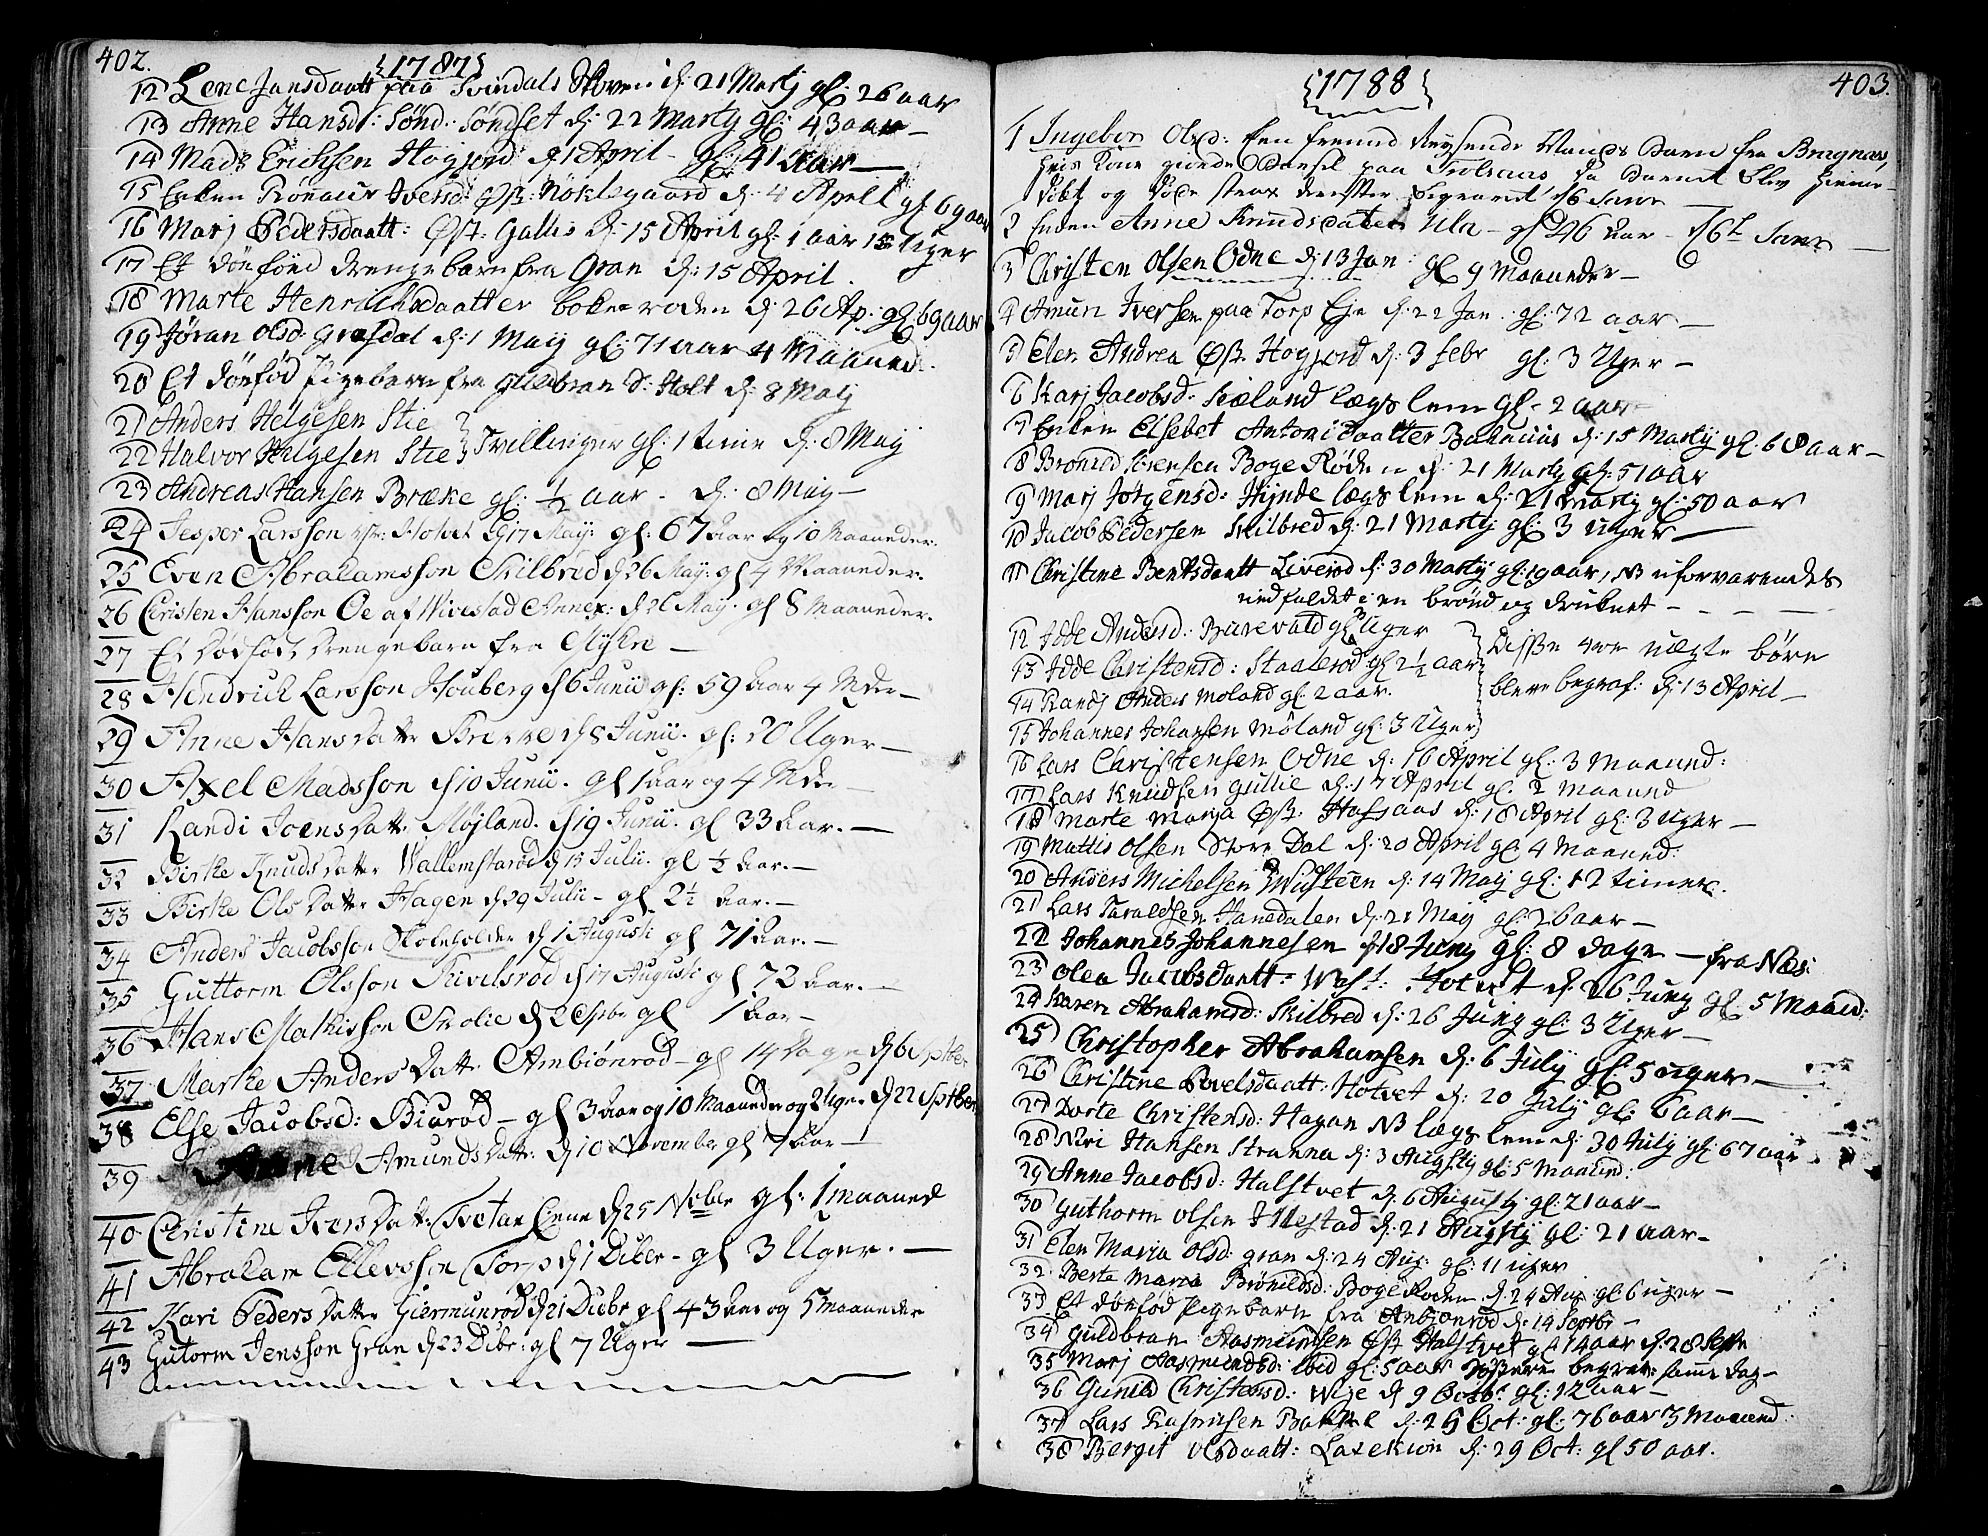 402.
{1787}
12 Lene Jansdaatt paa Svindals Skoven d: 21 Martj gl: 26 aar
13 Anne Hansd: Sønd: Søndset d: 22 Martj gl: 43 aar
14 Mads Erichsen Hogjord d 1 April gl: 41 aar
15 Enken Rønnaur Iversd: Øst: Nøklegaard d: 4 April gl 69 aar
16 Marj Pedersdaatt: Øst: Gallis d: 15 April gl: 1 aar 13 Uger
17 Et dønfönd drengebarn fra Gran d: 15 April.
18 Marte Henrichsdaatter bogeroden d: 26 Ap: gl 69 aar
19 Jøran Olsd: Græsdal d: 1 Maij gl: 71 aar 4 Maaned.
20 Et dønfød Pigebarn fra Guldbran S: Holt d: 8 Maij
21 Anders Helgesen Stie
22 Halvor Helgesen Stie } Tvillinger gl: 1 time d: 8 Maij
23 Andreas Hansen Bræke gl: ½ aar - d: 8 Maij
24 Jesper Larsson Hotvet d 17 Maij: gl: 67 aar og 10 Maaneder.
25 Even Abrahamsson Skilbred d 26 Maij: gl 4 Maaneder.
26 Christen Hansson Oe af Wivestad Annex: d 26 Maij. gl 8 maaneder.
27 Et dødfødt drengebarn fra Slyken
28 Hendrich Larsson Houberg d 6 Junii gl: 59 aar 4 Mder
29 Anne Hansdatter Brekke d 8 Junii. gl: 20 Uger
30 Axel Madsson d 10 Junii. gl 1 aar og 4 Mder
31 Randi Joensdatt: Møjland. d 19 Junii. gl 33 aar.
32 Birthe Knudsdatter Wallemstarød d 15 Julii. gl ½ aar.
33 Birthe Olsdatter Hagen d 29 Julii gl 2½ aar.
34 Anders Jacobsson Skoleholder d 1 Augusti gl 71 aar.
35 Guttorm Olsson Trivelsrød d 17 Augusti gl 72 aar.
36 Hans Mathisson Svolie d 2 Sptbr gl 1 aar
37 Marthe Andersdatt: Ambiønrød gl 14 Dage d 6 Sptber
38 Else Jacobsd: Biurød gl 3 aar og 10 Maaneder og 2 Uger d 22 Sptber
39 Anne Amundsdatt: d 10 November gl 7 aar
40 Christine Iversdatt: Tvetan Eene d 25 Nobr gl: 1 maaned
41 Abraham Ellevsson Torp d 1 Dibr gl 3 Uger.
42 Kari Pedersdatter Giermunrød d 21 Diebr gl 43 aar og 5 maaneder
43 Gutorm Jensson Gran d 23 Dibr: gl 7 Uger
403.
{1788}
1 Ingebor Olsd: Een fremd Reysende Mands Barn fra Bragnæs,
hvis Kone giorde Barsel paa Trolsaas da Barnet blev hiemme
døbt og døde strax derefter begravet d 6 Janr
2 Enken Anne Knudsdatter Ula gl 46 aar d 6t Janr
3 Christen Olsen Odne d: 13 Jan: gl 9 Maaneder
4 Amun Iversen paa Torp Eje d: 22 Jan: gl: 72 aar.
5 Elen Andrea Øst: Hogjord d: 3 febr gl: 3 Uger
6 Karj Jacobsd: Sæland lægs lem gl: 2 aar
7 Enken Elsebet Antonidaatter Bakaas d: 15 Martij gl: 68 aar
8 Bronild Sørensen Boge Røden d: 21 Martij gl: 51 aar
9 Marj Jørgensd: Hynde lægs lem d: 21 Martij gl: 50 aar
10 Jacob Pedersen Skilbred d: 21 Martij gl: 3 uger
11 Christine Bentsdaatt Liverød d: 30 Martij gl: 19 aar, NB uforvarendes
nedfaldet i en brønd og druknet
12 Idde Andersd: Burevald gl 3 Uger
13 Idde Christensd: Staalerød gl 2½ aar
14 Randj Anders Moland gl: 2 aar.
15 Johannes Johansen Møland gl: 3 Uger
} Disse 4re uægte børn
bleve begraf: d: 13 April
16 Lars Christensen Odne d: 16 April gl: 3 Maaned:
17 Lars Knudsen Gullie d: 17 April gl: 2 maaned
18 Marte Marja Øst: Hafsaas d: 18 April gl: 3 uger
19 Mattis Olsen Store Dal d: 20 April gl 4 Maaned:
20 Anders Michelsen Wiisteen d: 14 Maij gl: 12 timer.
21 Lars Taraldsen Hanedalen d: 21 Maij gl: 26 aar
22 Johannes Johannesen d 18 Juny gl: 8 dage fra Næs:
23 Olea Jacobsdaatt: West: Hotvet d: 26 Juny gl: 5 Maaned:
24 Karen Abrahamsd: Skilbred d: 26 Juny gl: 3 Uger
25 Christopher Abrahamsen d: 6 July gl: 5 uger
26 Christine Povelsdaatt: Hotvet d: 20 July gl: 6 aar
27 Dorte Christensd: Hagan NB lægs lem d: 30 July gl 67 aar
28 Niri Hansen Stranna d: 3 Augsty gl: 5 Maaned:
29 Anne Jacobsd: Halstvet d: 6 Augusty gl: 21 aar
30 Guthorm Olsen Illestad d: 21 Augsty gl: 21 aar
31 Elen Maria Olsd: Gran d: 24 Aug: gl: 11 uger
32 Berte Maria Brønildsd: Boge Roden d: 24 Aug gl: 6 uger
33 Et dønfød Pigebarn fra Anbjønrød d: 14 Septbr
34 Guldbran Aasmundsen Øst Halstvet gl 14 aar d: 28 Septr
35 Marj Aasmundsd: ibid gl: 5 aar begrav: samme dag
36 Gunild Christensd: Wije d 9 Octbr gl: 12 aar
37 Lars Rasmusen Bakke d: 26 Oct: gl: 76 aar 3 Maaned:
38 Bergit Olsdaatt: Lasekiøn d: 29 Oct: gl 50 aar.